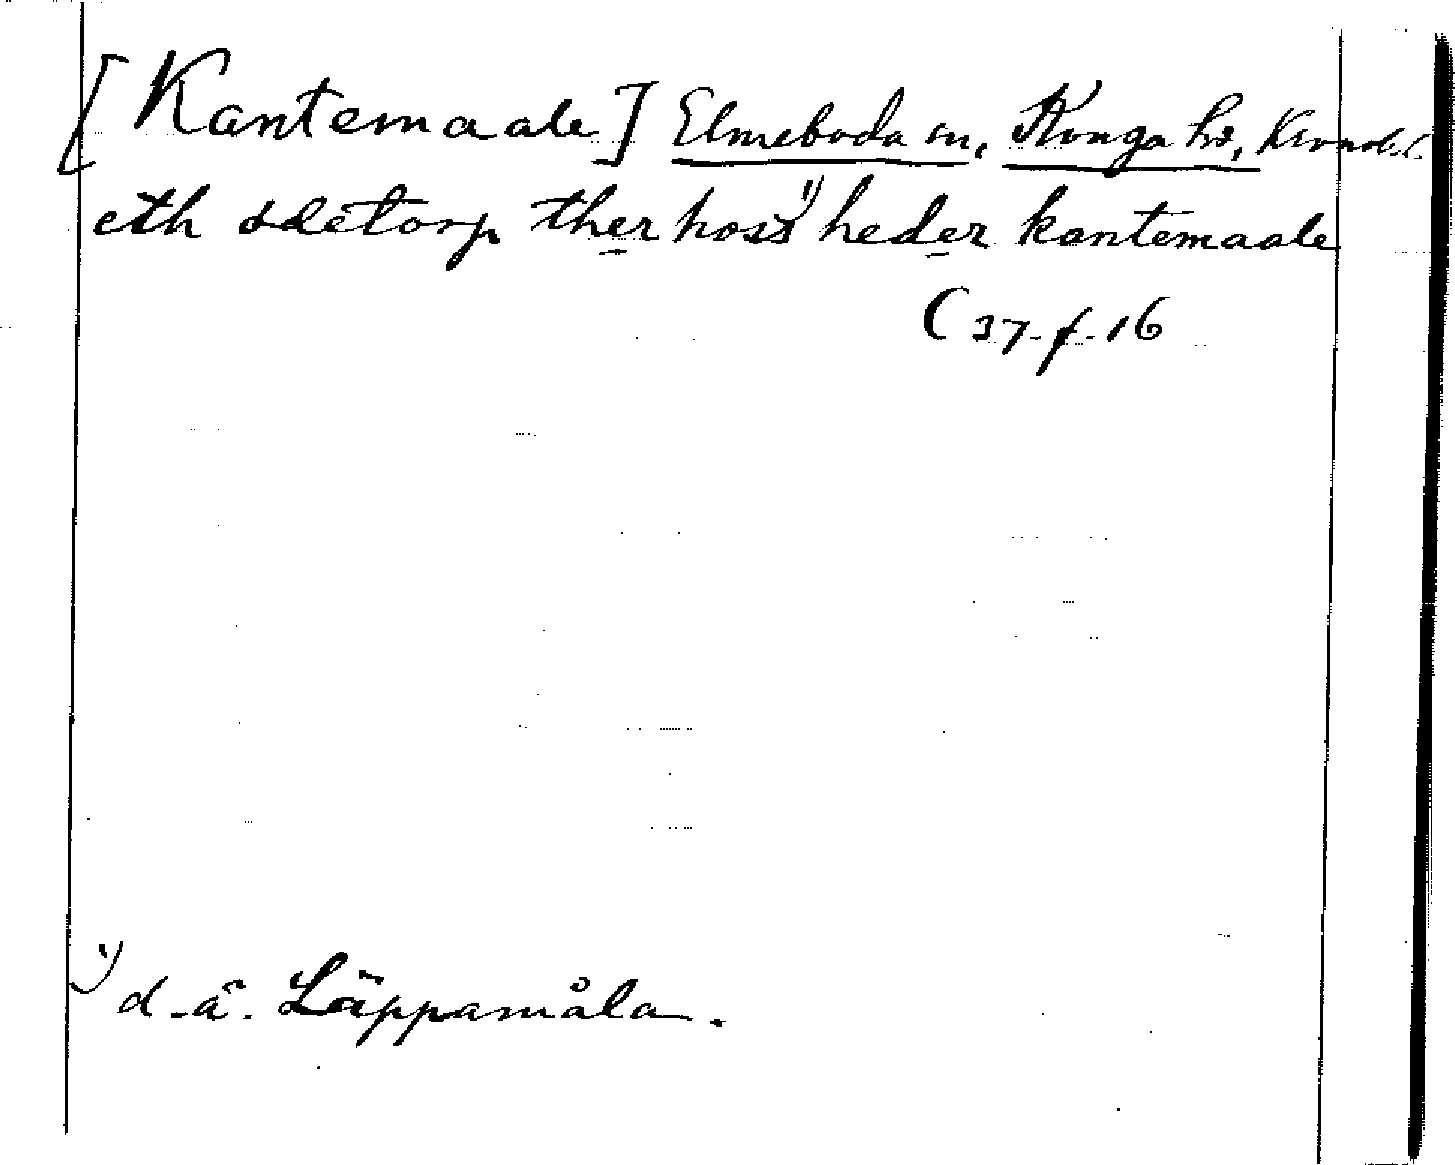 [Kantemaale] Elmeboda sn, Konga hd, Kronob.l.
eth ödetorp ther hoss¹⁾ heder kantemaale
(37-f-16
¹⁾ d.ä. Läppamåla.